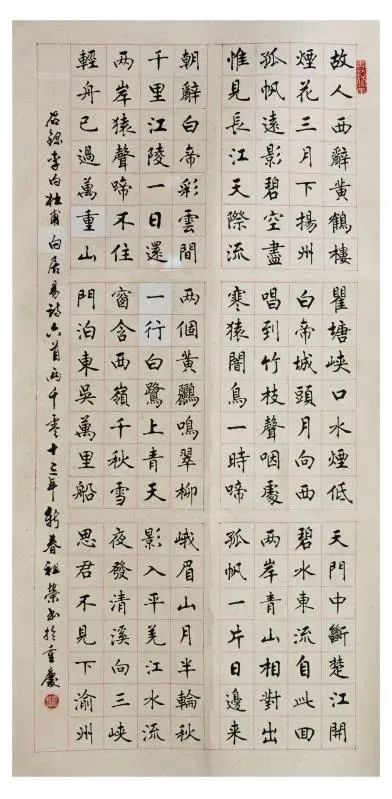 故人西辭黄鶴樓
煙花三月下揚州
孤帆遠影碧空盡
惟見長江天際流
朝辭白帝彩雲間
千里江陵一日還
兩岸猿聲啼不住
輕舟已過萬重山
瞿塘峽口水煙低
白帝城頭月向西
唱到竹枝聲咽處
寒猿闇鳥一時啼
兩個黄鸝鳴翠柳
一行白鷺上青天
窗含西嶺千秋雪
門泊東吳萬里船
天門中斷楚江開
碧水東流自此回
兩岸青山相對出
孤帆一片日邊來
峨眉山月半輪秋
影入平羌江水流
夜發清溪向三峽
思君不見下渝州
右錄李白杜甫白居易詩六首兩千零十三年新春祖榮書於重慶